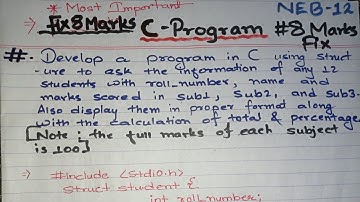 * Most Important
NEB-12
⇒ Fix 8 Marks C-Program #8 Marks
Fix
#. Develop a program in C using struct
-ure to ask the information of any 12
students with roll_number, name and
marks scored in sub1, sub2, and sub3.
Also display them in proper format along
with the calculation of total & percentage.
[Note : the full marks of each subject
is 100]
⇒ #include <stdio.h>
struct student {
int roll_number;